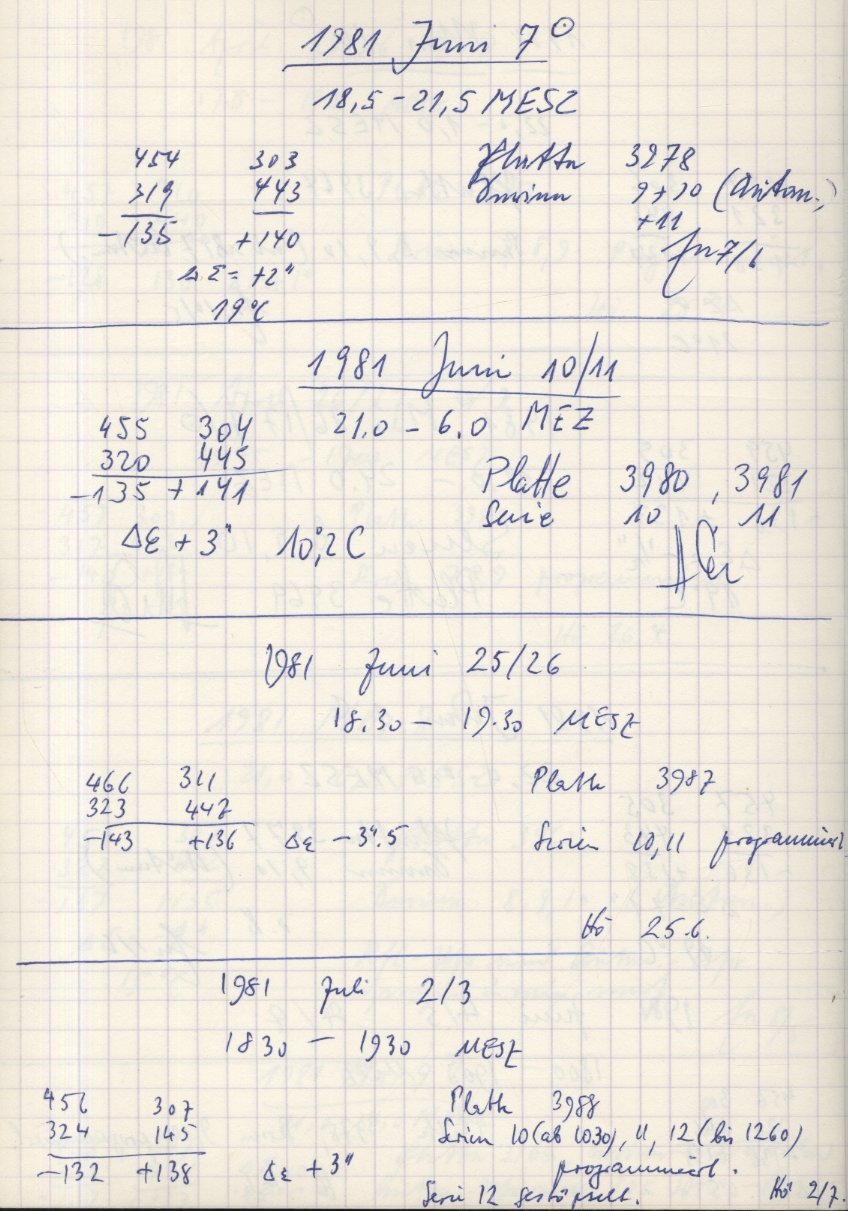 1981 Juni 7 ☉
18,5 - 21,5 MESZ
454 303 Platte 3978
319 443 Serien 9+10 (autom.)
-135 +140 +11
Δε = +2"
19°C
1981 Juni 10/11
455 304 21.0 - 6.0 MEZ
320 445 Platte 3980, 3981
-135 +141 Serie 10 11
Δε +3" 10°,2 C
1981 Juni 25/26
18.30 - 19.30 MESZ
466 311 Platte 3987
323 447
-143 +136 Δε -3".5 Serien 10, 11 programmiert
Hö 25.6.
1981 Juli 2/3
1830 - 1930 MESZ
456 307 Platte 3988
324 145 Serien 10 (ab 1030), 11, 12 (bis 1260)
-132 +138 Δε +3" programmiert.
Serie 12 gestöpselt. Hö 2/7.